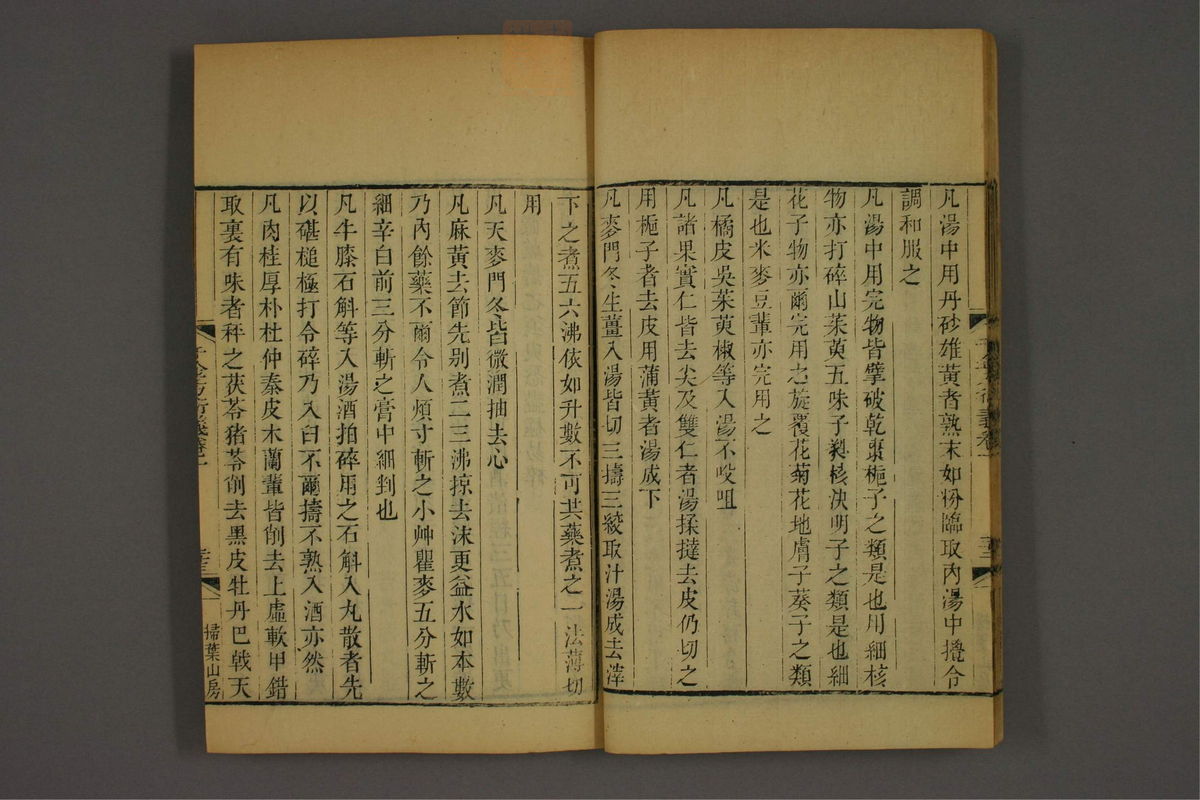 凡湯中用丹砂雄黃者熟末如粉臨取內湯中攪令
調和服之
凡湯中用完物皆擘破乾棗梔子之類是也用細核
物亦打碎山茱萸五味子蕤核决明子之類是也細
花子物亦爾完用之旋覆花菊花地膚子葵子之類
是也米麥豆輩亦完用之
凡橘皮吳茱萸椒等入湯不㕮咀
凡諸果實仁皆去尖及雙仁者湯揉撻去皮仍切之
用梔子者去皮用蒲黃者湯成下
凡麥門冬生薑入湯皆切三擣三絞取汁湯成去滓
下之煮五六沸依如升數不可共藥煮之一法薄切
用
凡天麥門冬皆微潤抽去心
凡麻黃去節先别煮二三沸掠去沫更益水如本數
乃內餘藥不爾令人煩寸斬之小艸瞿麥五分斬之
細辛白前三分斬之膏中細剉也
凡牛膝石斛等入湯酒拍碎用之石斛入丸散者先
以碪槌極打令碎乃入臼不爾擣不熟入酒亦然
凡肉桂厚朴杜仲秦皮木蘭輩皆削去上虛軟甲錯
取裏有味者秤之茯苓猪苓削去黑皮牡丹巴戟天
千金方衍義卷一
掃葉山房